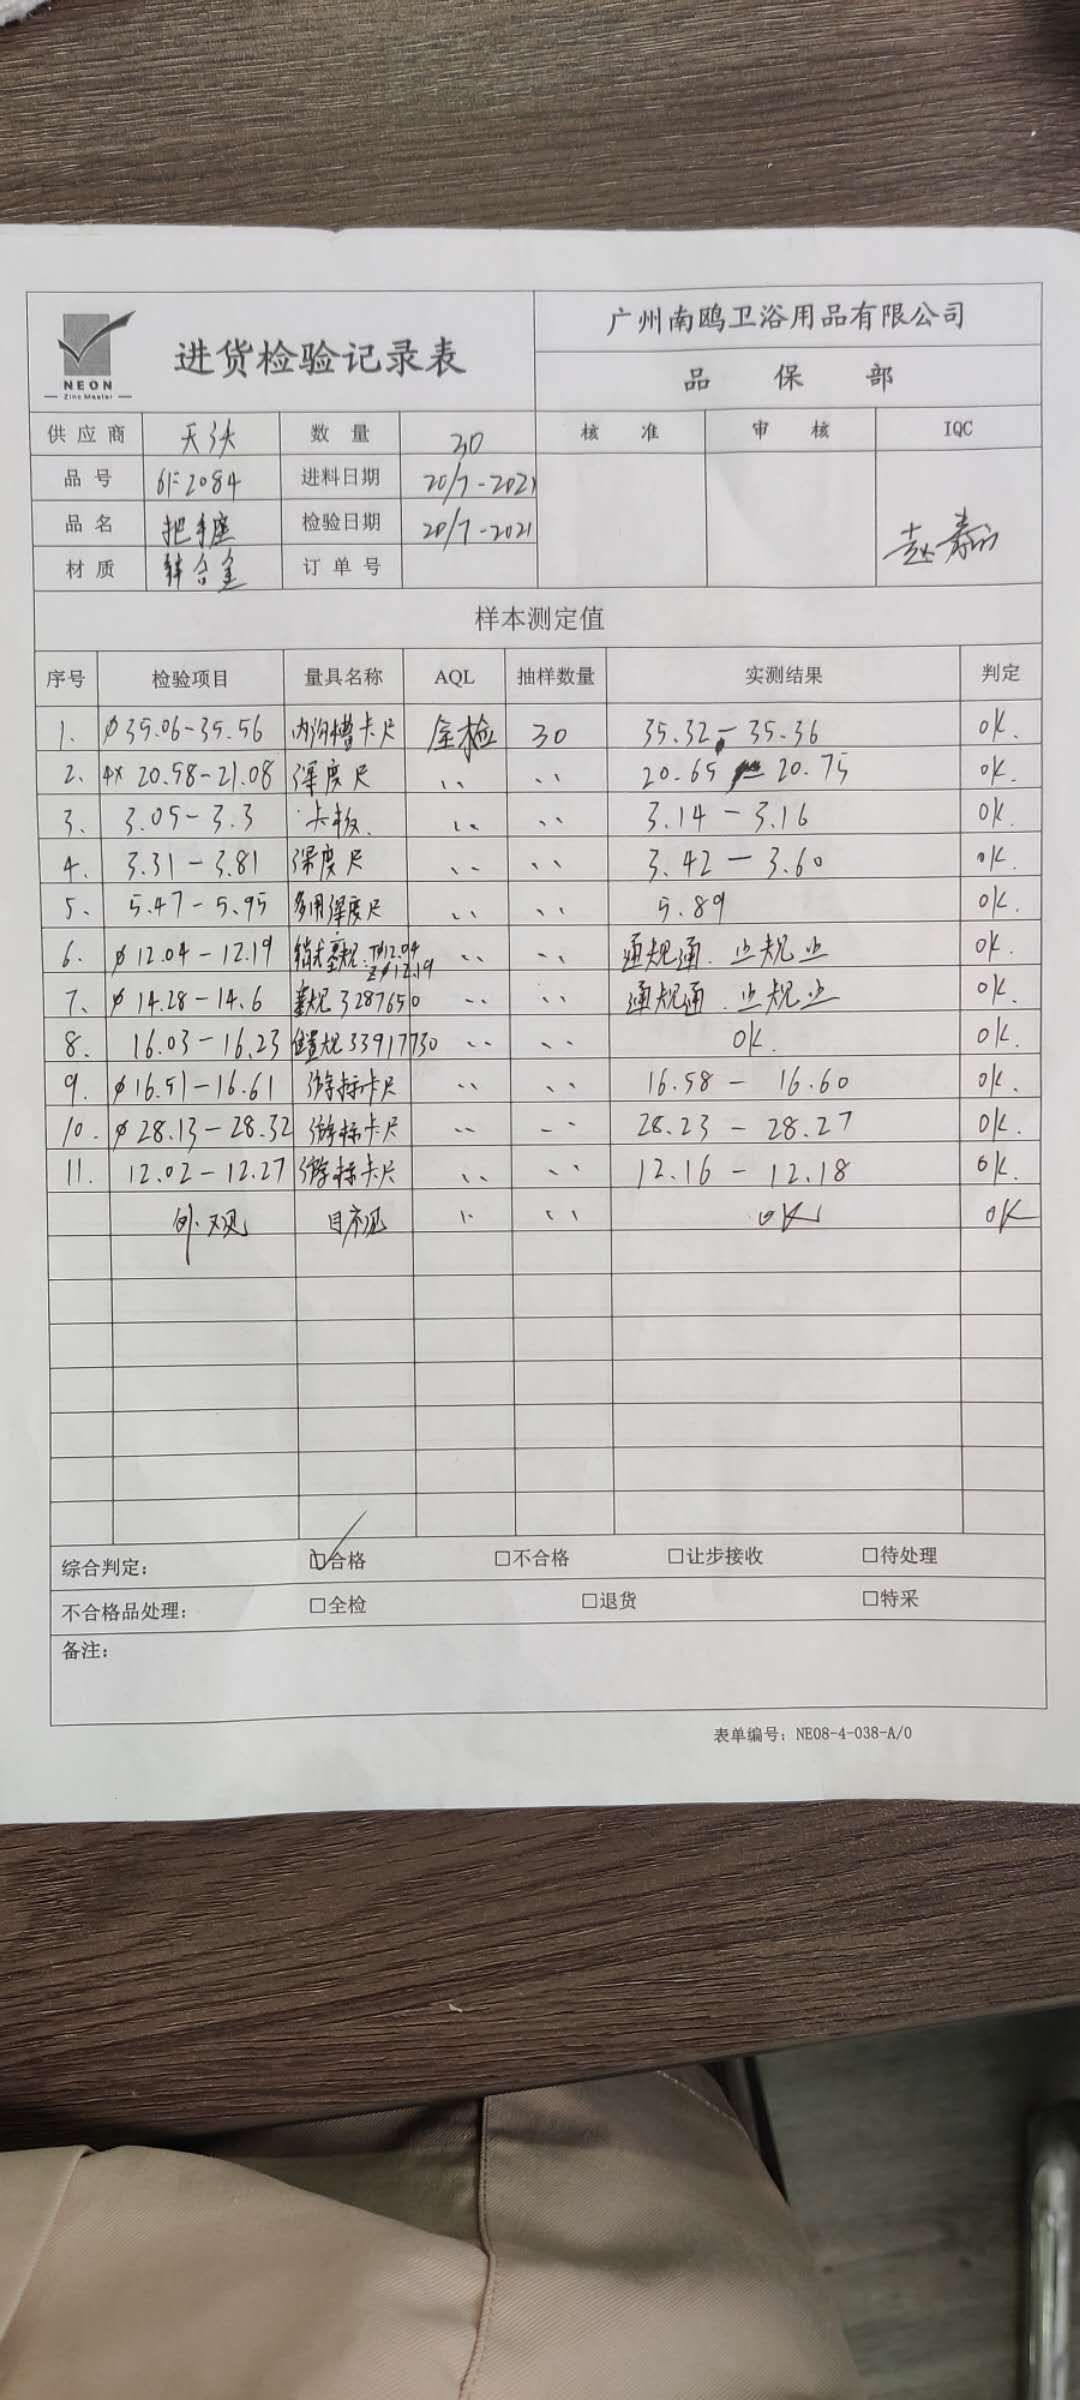 NEON
Zinc Master
进货检验记录表
广州南鸥卫浴用品有限公司
品 保 部
供应商 数量 30 核准 审核 IQC
品号 2084 进料日期 20/7-2021
品名 把手座 检验日期 20/7-2021
材质 锌合金 订单号
样本测定值
序号 检验项目 量具名称 AQL 抽样数量 实测结果 判定
1. φ35.06-35.56 内沟槽卡尺 全检 30 35.32-35.36 OK.
2、 4x 20.58-21.08 深度尺 〃 〃 20.65-20.75 OK.
3、 3.05-3.3 卡板. 〃 〃 3.14-3.16 OK.
4. 3.31-3.81 深度尺 〃 〃 3.42-3.60 OK.
5、 5.47-5.95 多用深度尺 〃 〃 5.89 OK.
6. φ12.04-12.19 塞规: Tφ12.04 Zφ12.19 〃 〃 通规通. 止规止 OK.
7、 φ14.28-14.6 塞规3287650 〃 〃 通规通. 止规止 OK.
8. 16.03-16.23 位置规33917730 〃 〃 OK. OK.
9. φ16.51-16.61 游标卡尺 〃 〃 16.58-16.60 OK.
10. φ28.13-28.32 游标卡尺 〃 〃 28.23-28.27 OK.
11. 12.02-12.27 游标卡尺 〃 〃 12.16-12.18 OK.
外观 目视 〃 〃 OK OK
综合判定: ☑合格 □不合格 □让步接收 □待处理
不合格品处理: □全检 □退货 □特采
备注:
表单编号: NE08-4-038-A/0